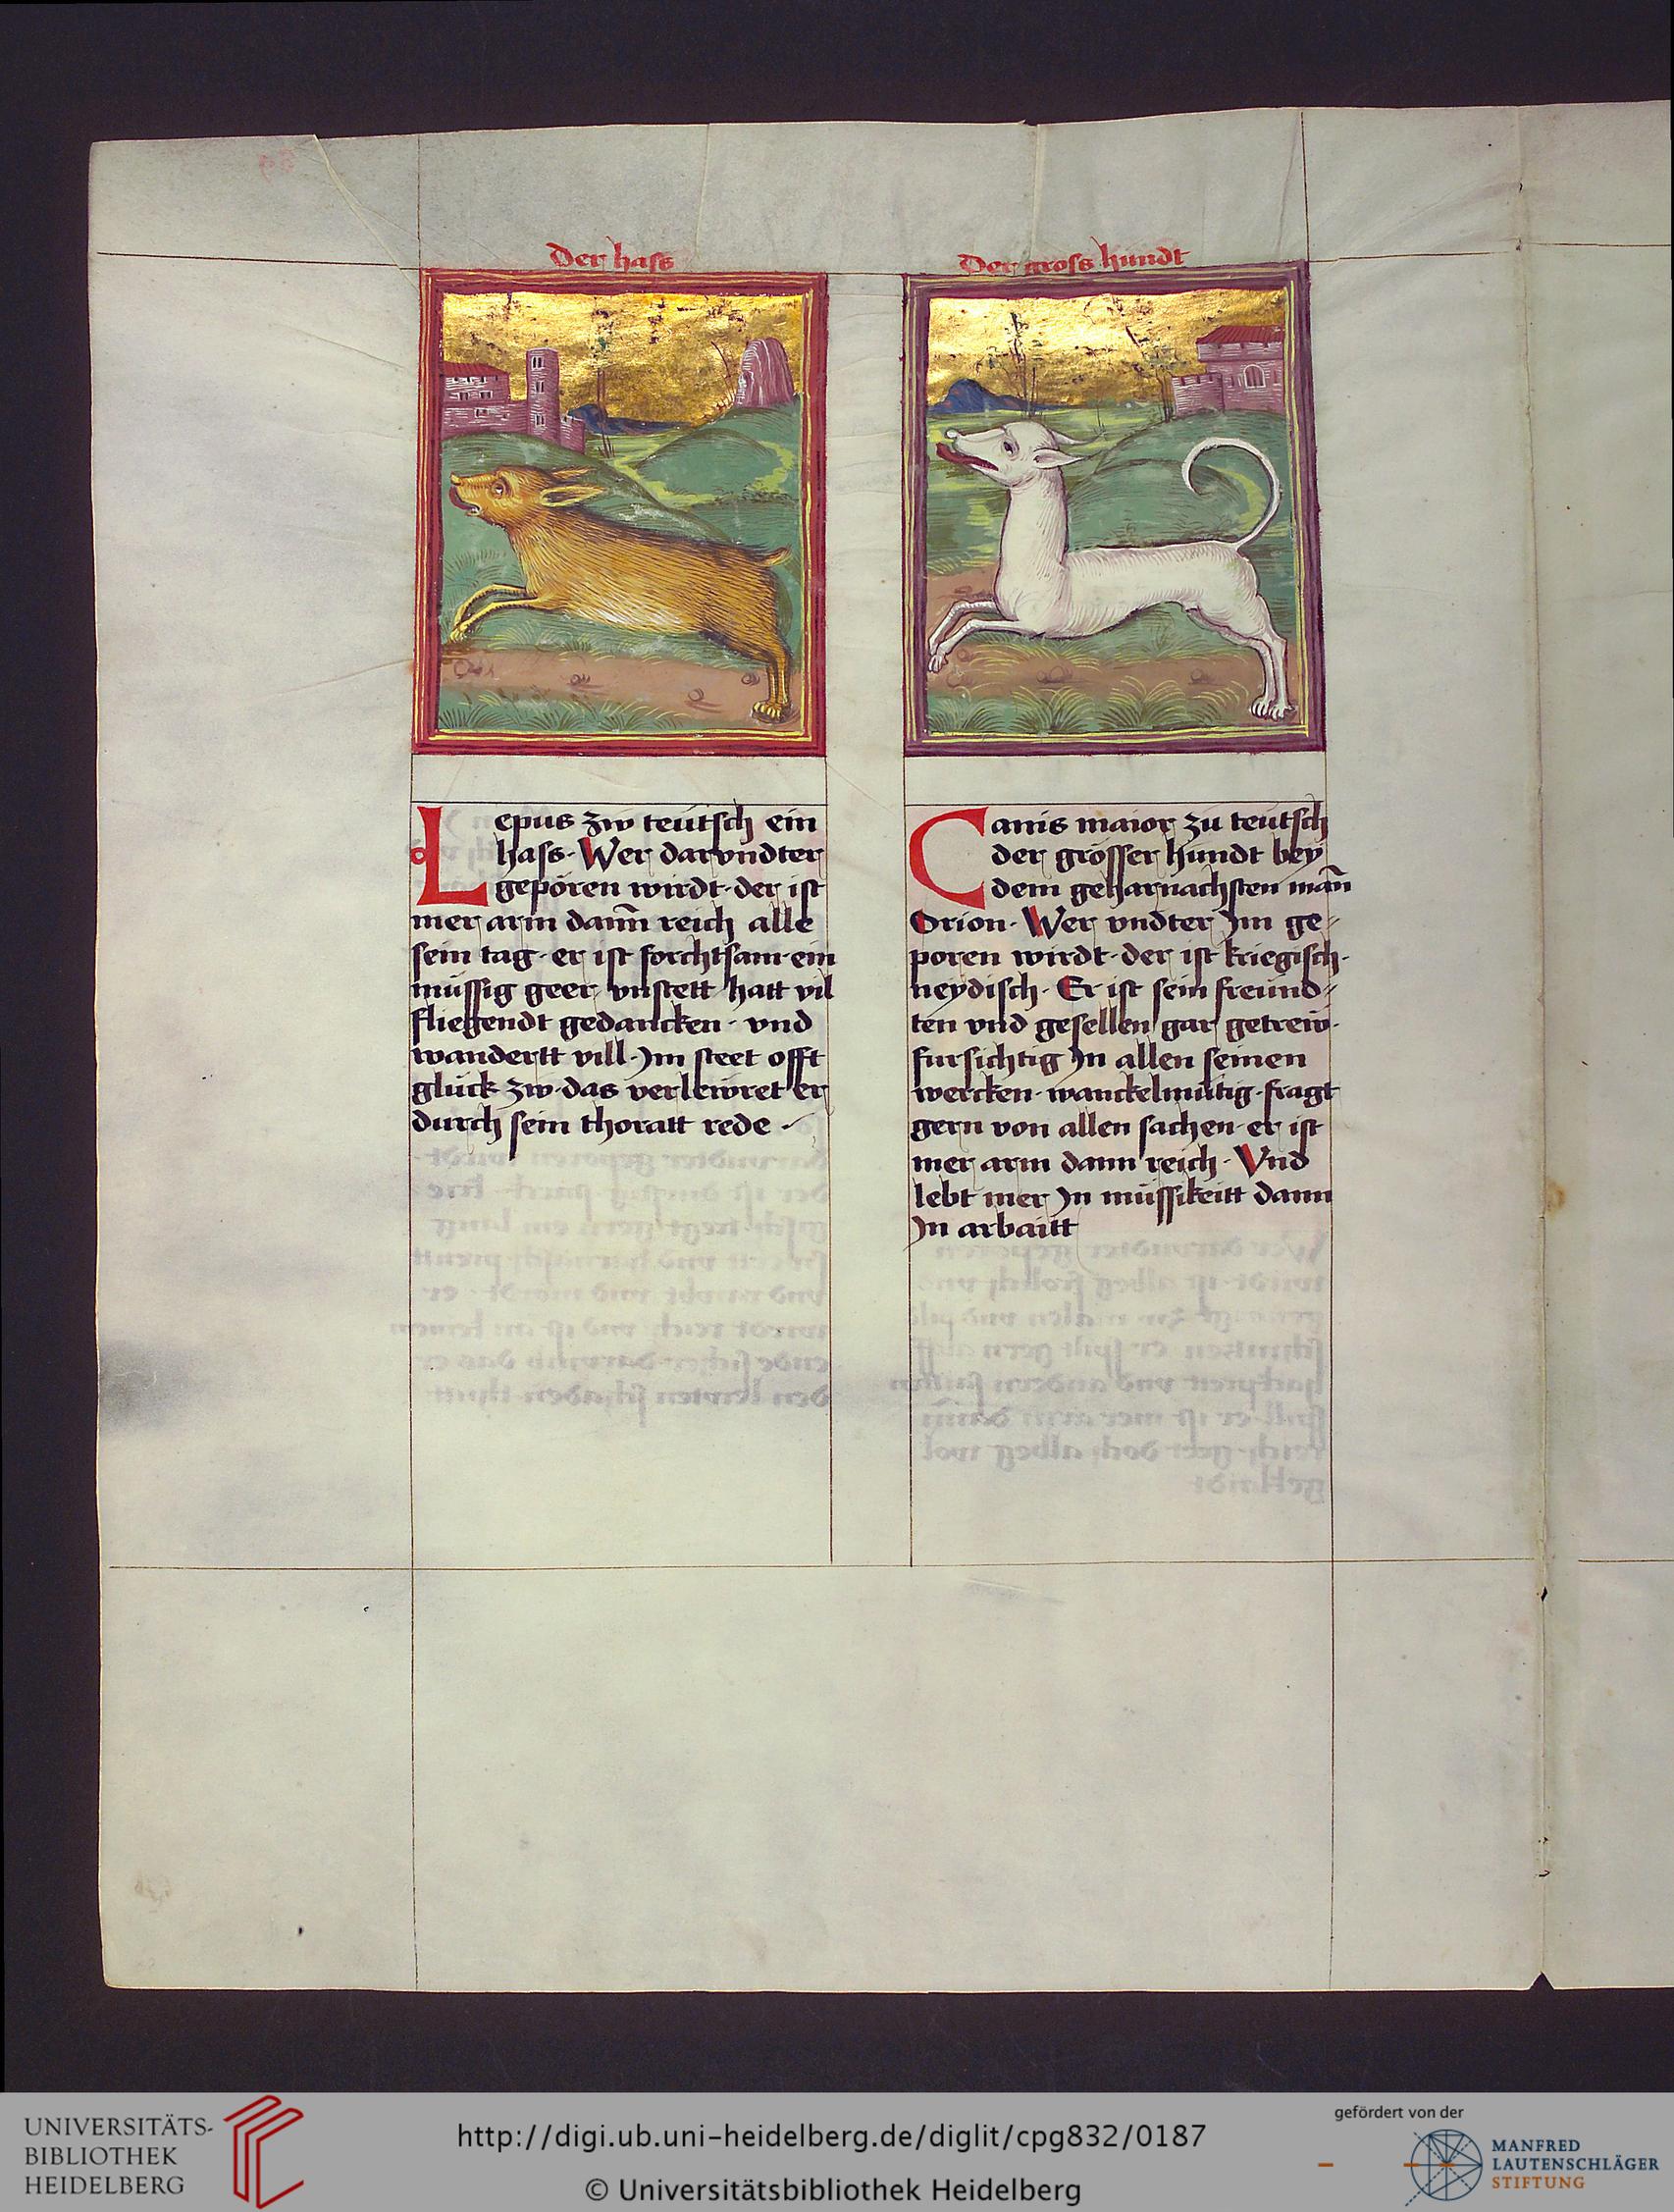 Der hass
Lepus zw teütsch ein
hass· Wer darvndter
gepören wirdt· der ist
mer arm dann̄ reich alle
sein tag· er ist forchtsam· ein
müssig geer vnstett hatt vil
fliegendt gedancken· vnd
wandertt vill· Im steet offt
glück zw· das verlewret er
durch sein thoratt rede·
Der gross hundt
Canis maior zu teütsch
der grösser hundt bey
dem geharnachsten man̄
Orion· Wer vndter Im ge⸗
poren wirdt· der ist kriegisch·
neydisch· Er ist sein freünd⸗
ten vnd gesellen gar getrew·
fursichtig In allen seinen
wercken· wanckelmütig· fragt
gern von allen sachen· er ist
mer arm dann reich· Vnd
lebt mer In müssikeitt dann
In arbaitt
UNIVERSITÄTS-
BIBLIOTHEK
HEIDELBERG
http://digi.ub.uni-heidelberg.de/diglit/cpg832/0187
© Universitätsbibliothek Heidelberg
gefördert von der
MANFRED
LAUTENSCHLÄGER
STIFTUNG